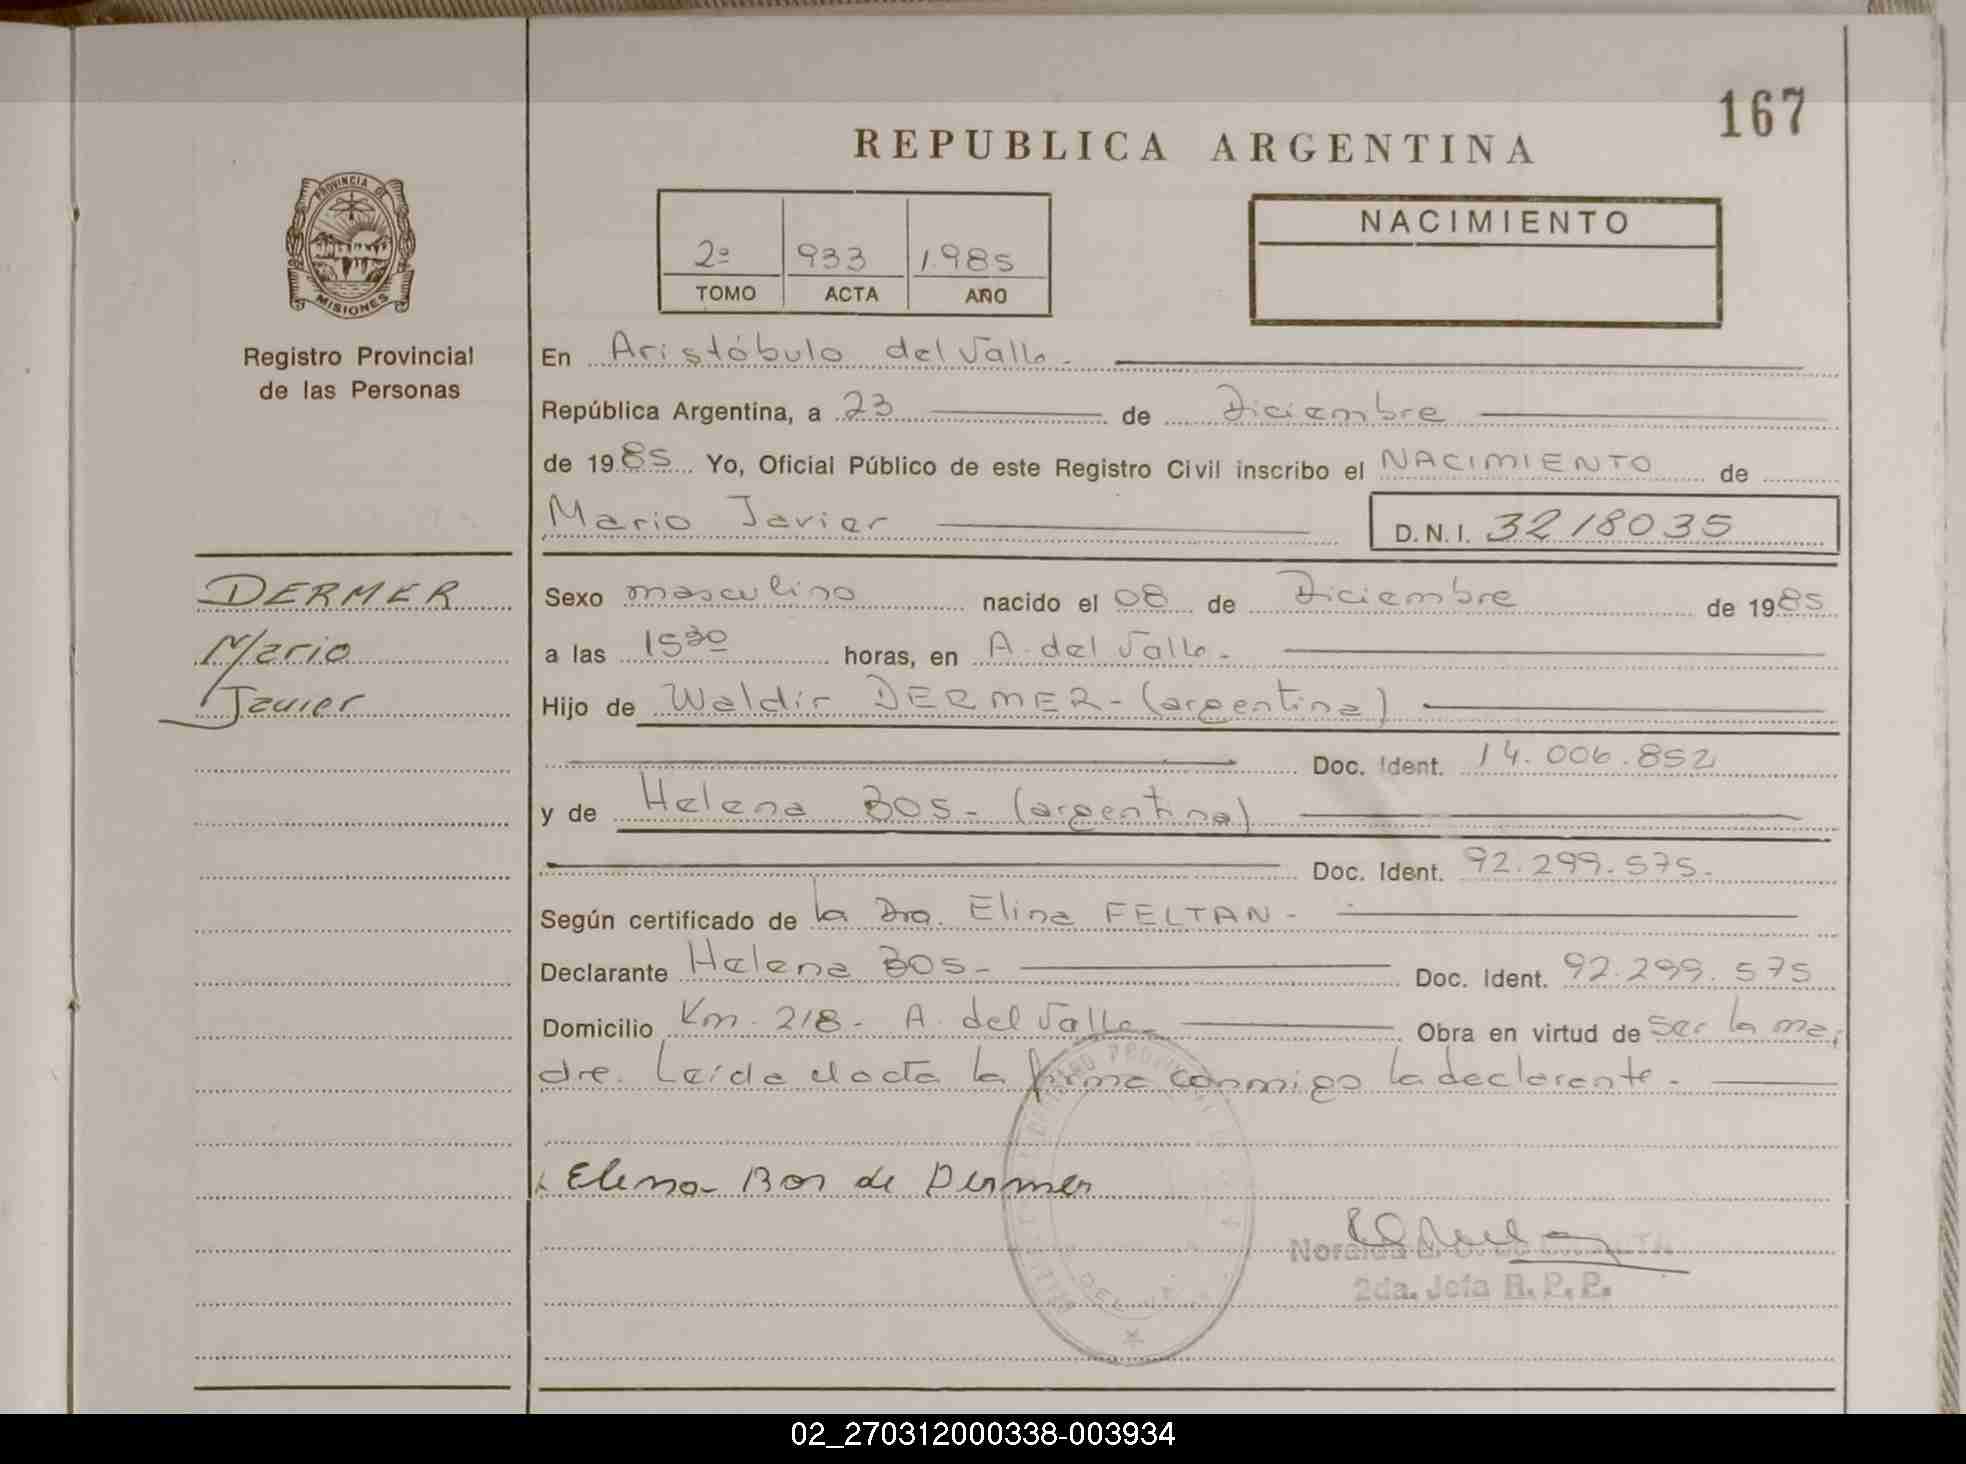 167
REPUBLICA ARGENTINA
PROVINCIA DE
MISIONES
Registro Provincial
de las Personas
2º 933 1.985
TOMO ACTA AÑO
NACIMIENTO
En Aristóbulo del Valle.-
República Argentina, a 23 de Diciembre
de 1985 Yo, Oficial Público de este Registro Civil inscribo el NACIMIENTO de
Mario Javier D.N.I. 3218035
DERMER
Mario
Javier
Sexo masculino nacido el 08 de Diciembre de 1985
a las 15 30 horas, en A. del Valle.-
Hijo de Waldir DERMER - (argentina)
Doc. Ident. 14.006.852
y de Helena BOS - (argentina)
Doc. Ident. 92.299.575.
Según certificado de la Dra. Elina FELTAN -
Declarante Helena BOS - Doc. Ident. 92.299.575
Domicilio Km. 218 - A. del Valle - Obra en virtud de ser la ma-
dre. Leída el acta la firma conmigo la declarante.-
Elena Bos de Dermer
2da. Jefa R. P. P.
02_270312000338-003934